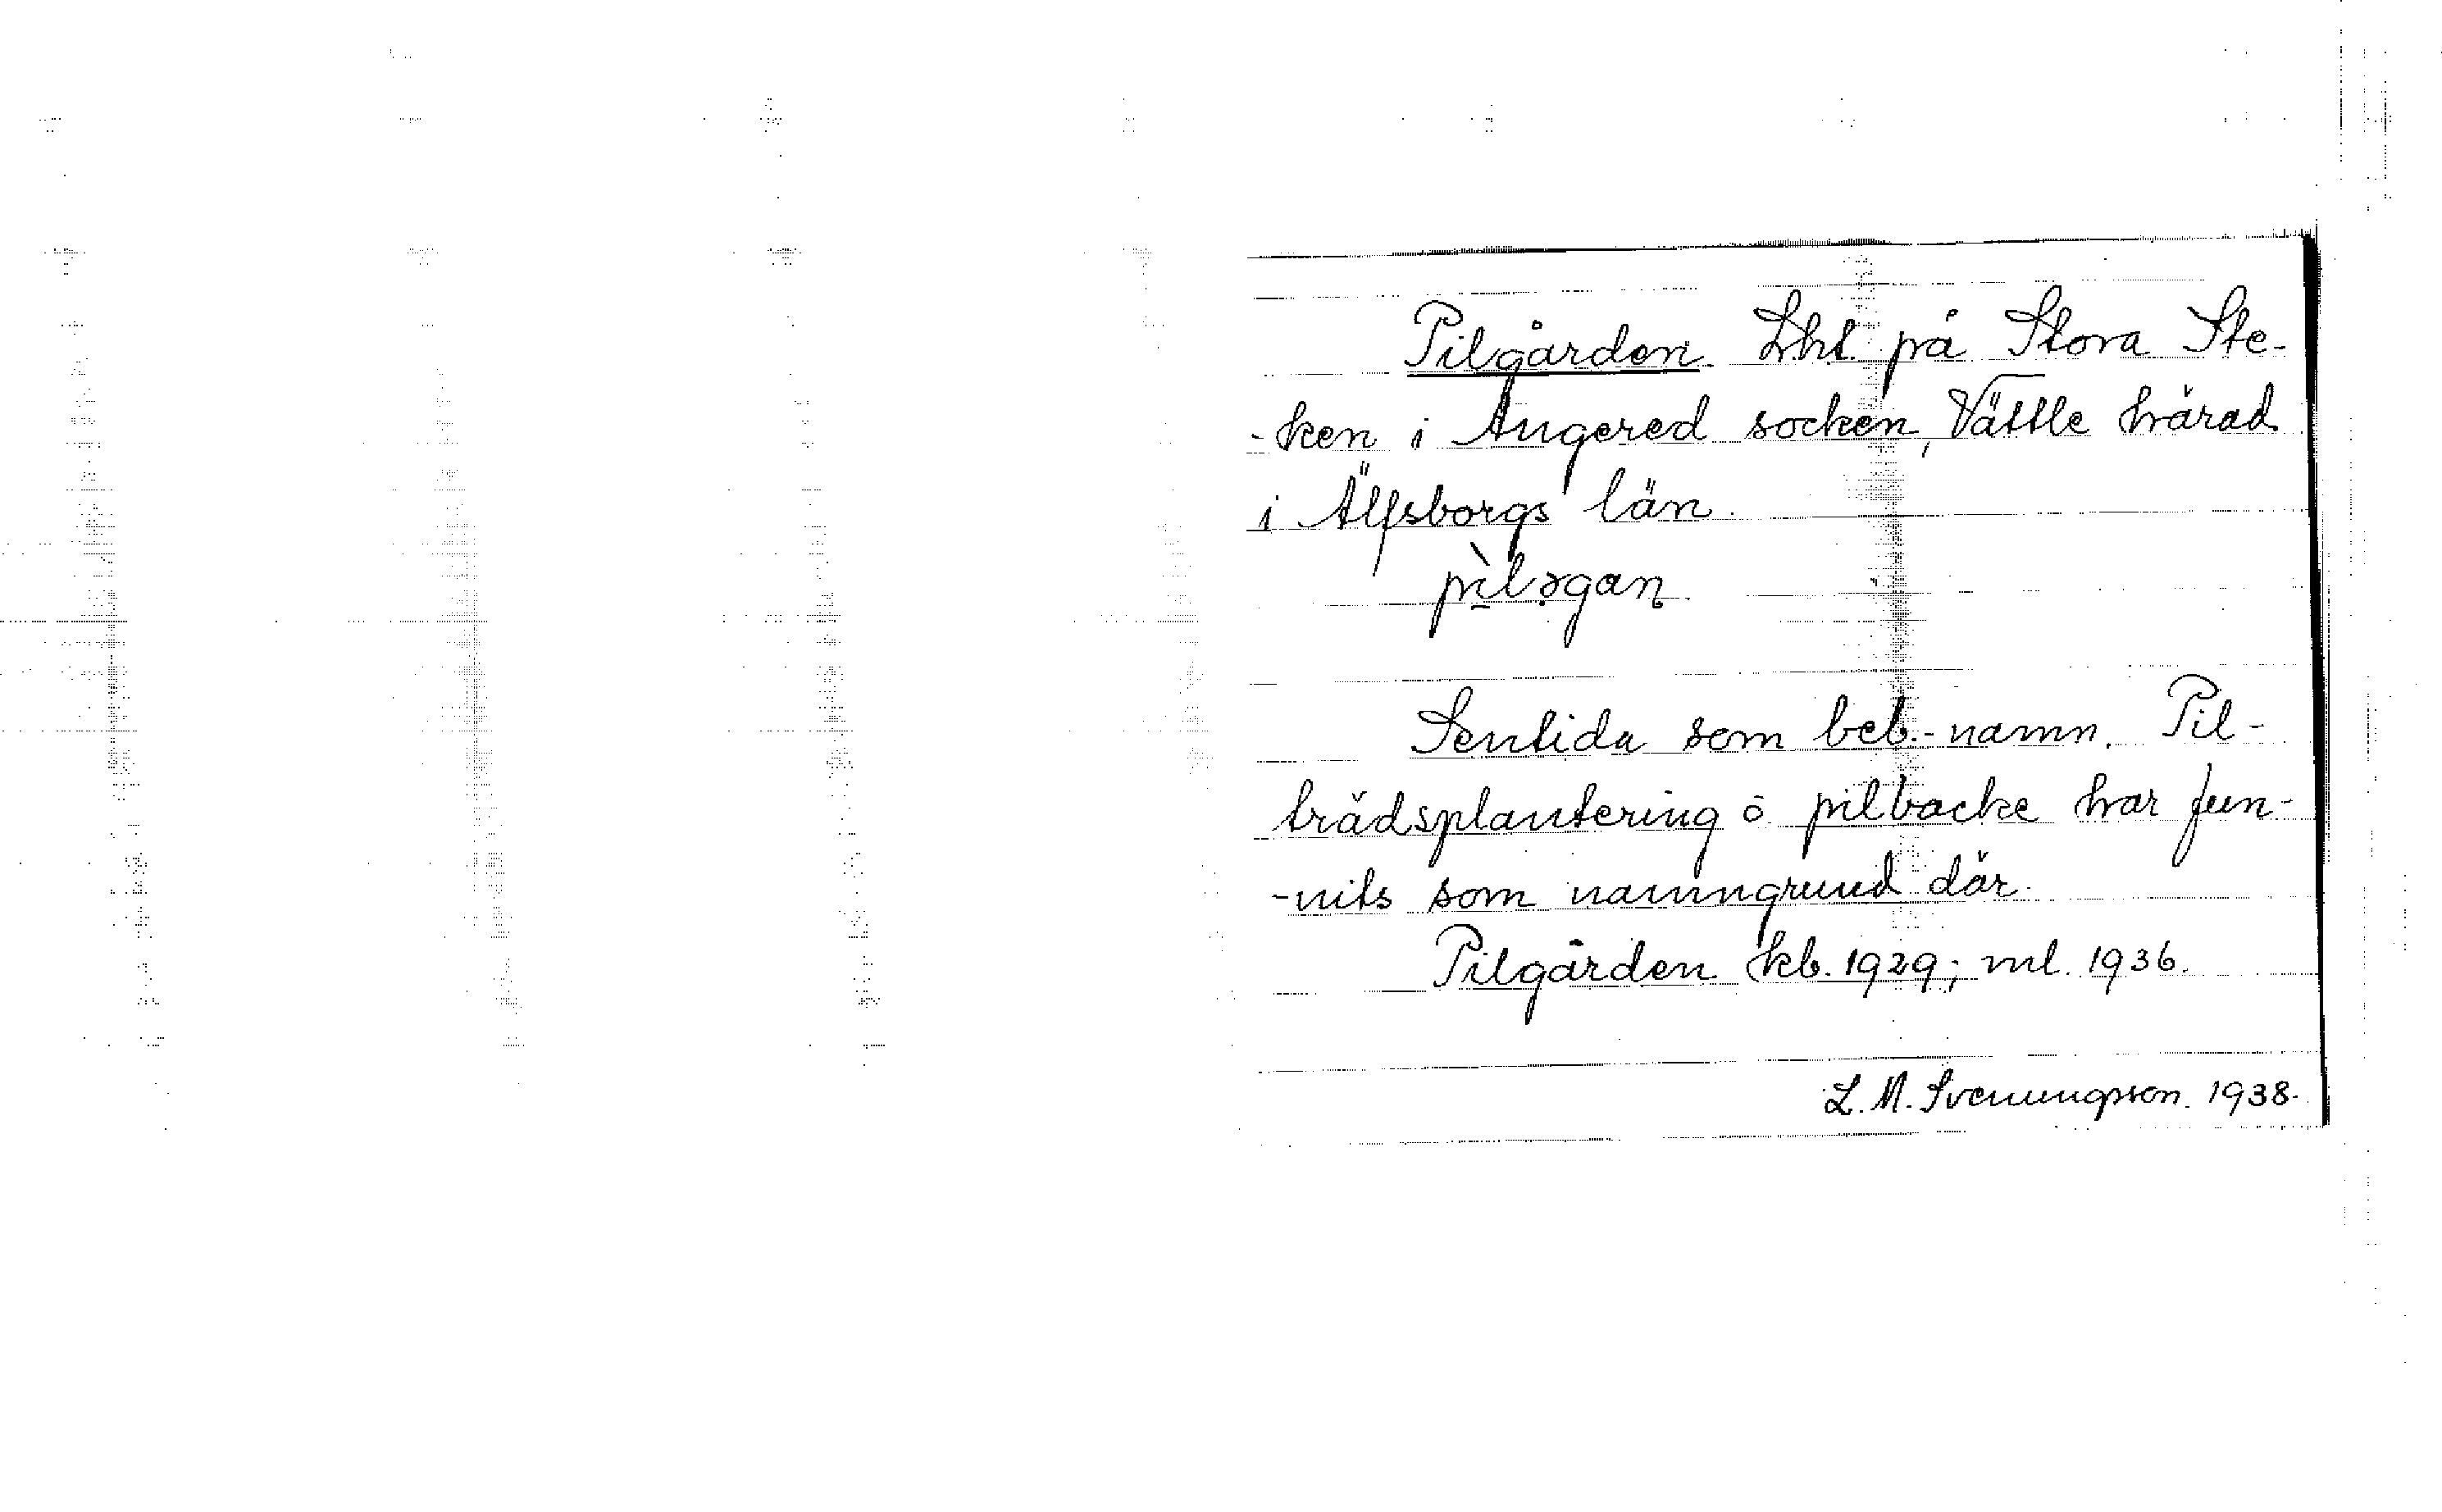 Pilgården. Lht. på Stora Ste-
-ken i Angered socken, Vättle härad
i Älfsborgs län.
pìlǝgan.
Sentida som beb.-namn. Pil-
trädsplantering ō pilbacke har fun-
-nits som namngrund där.
Pilgården kb. 1929; ml. 1936.
L. M. Svenungsson. 1938.